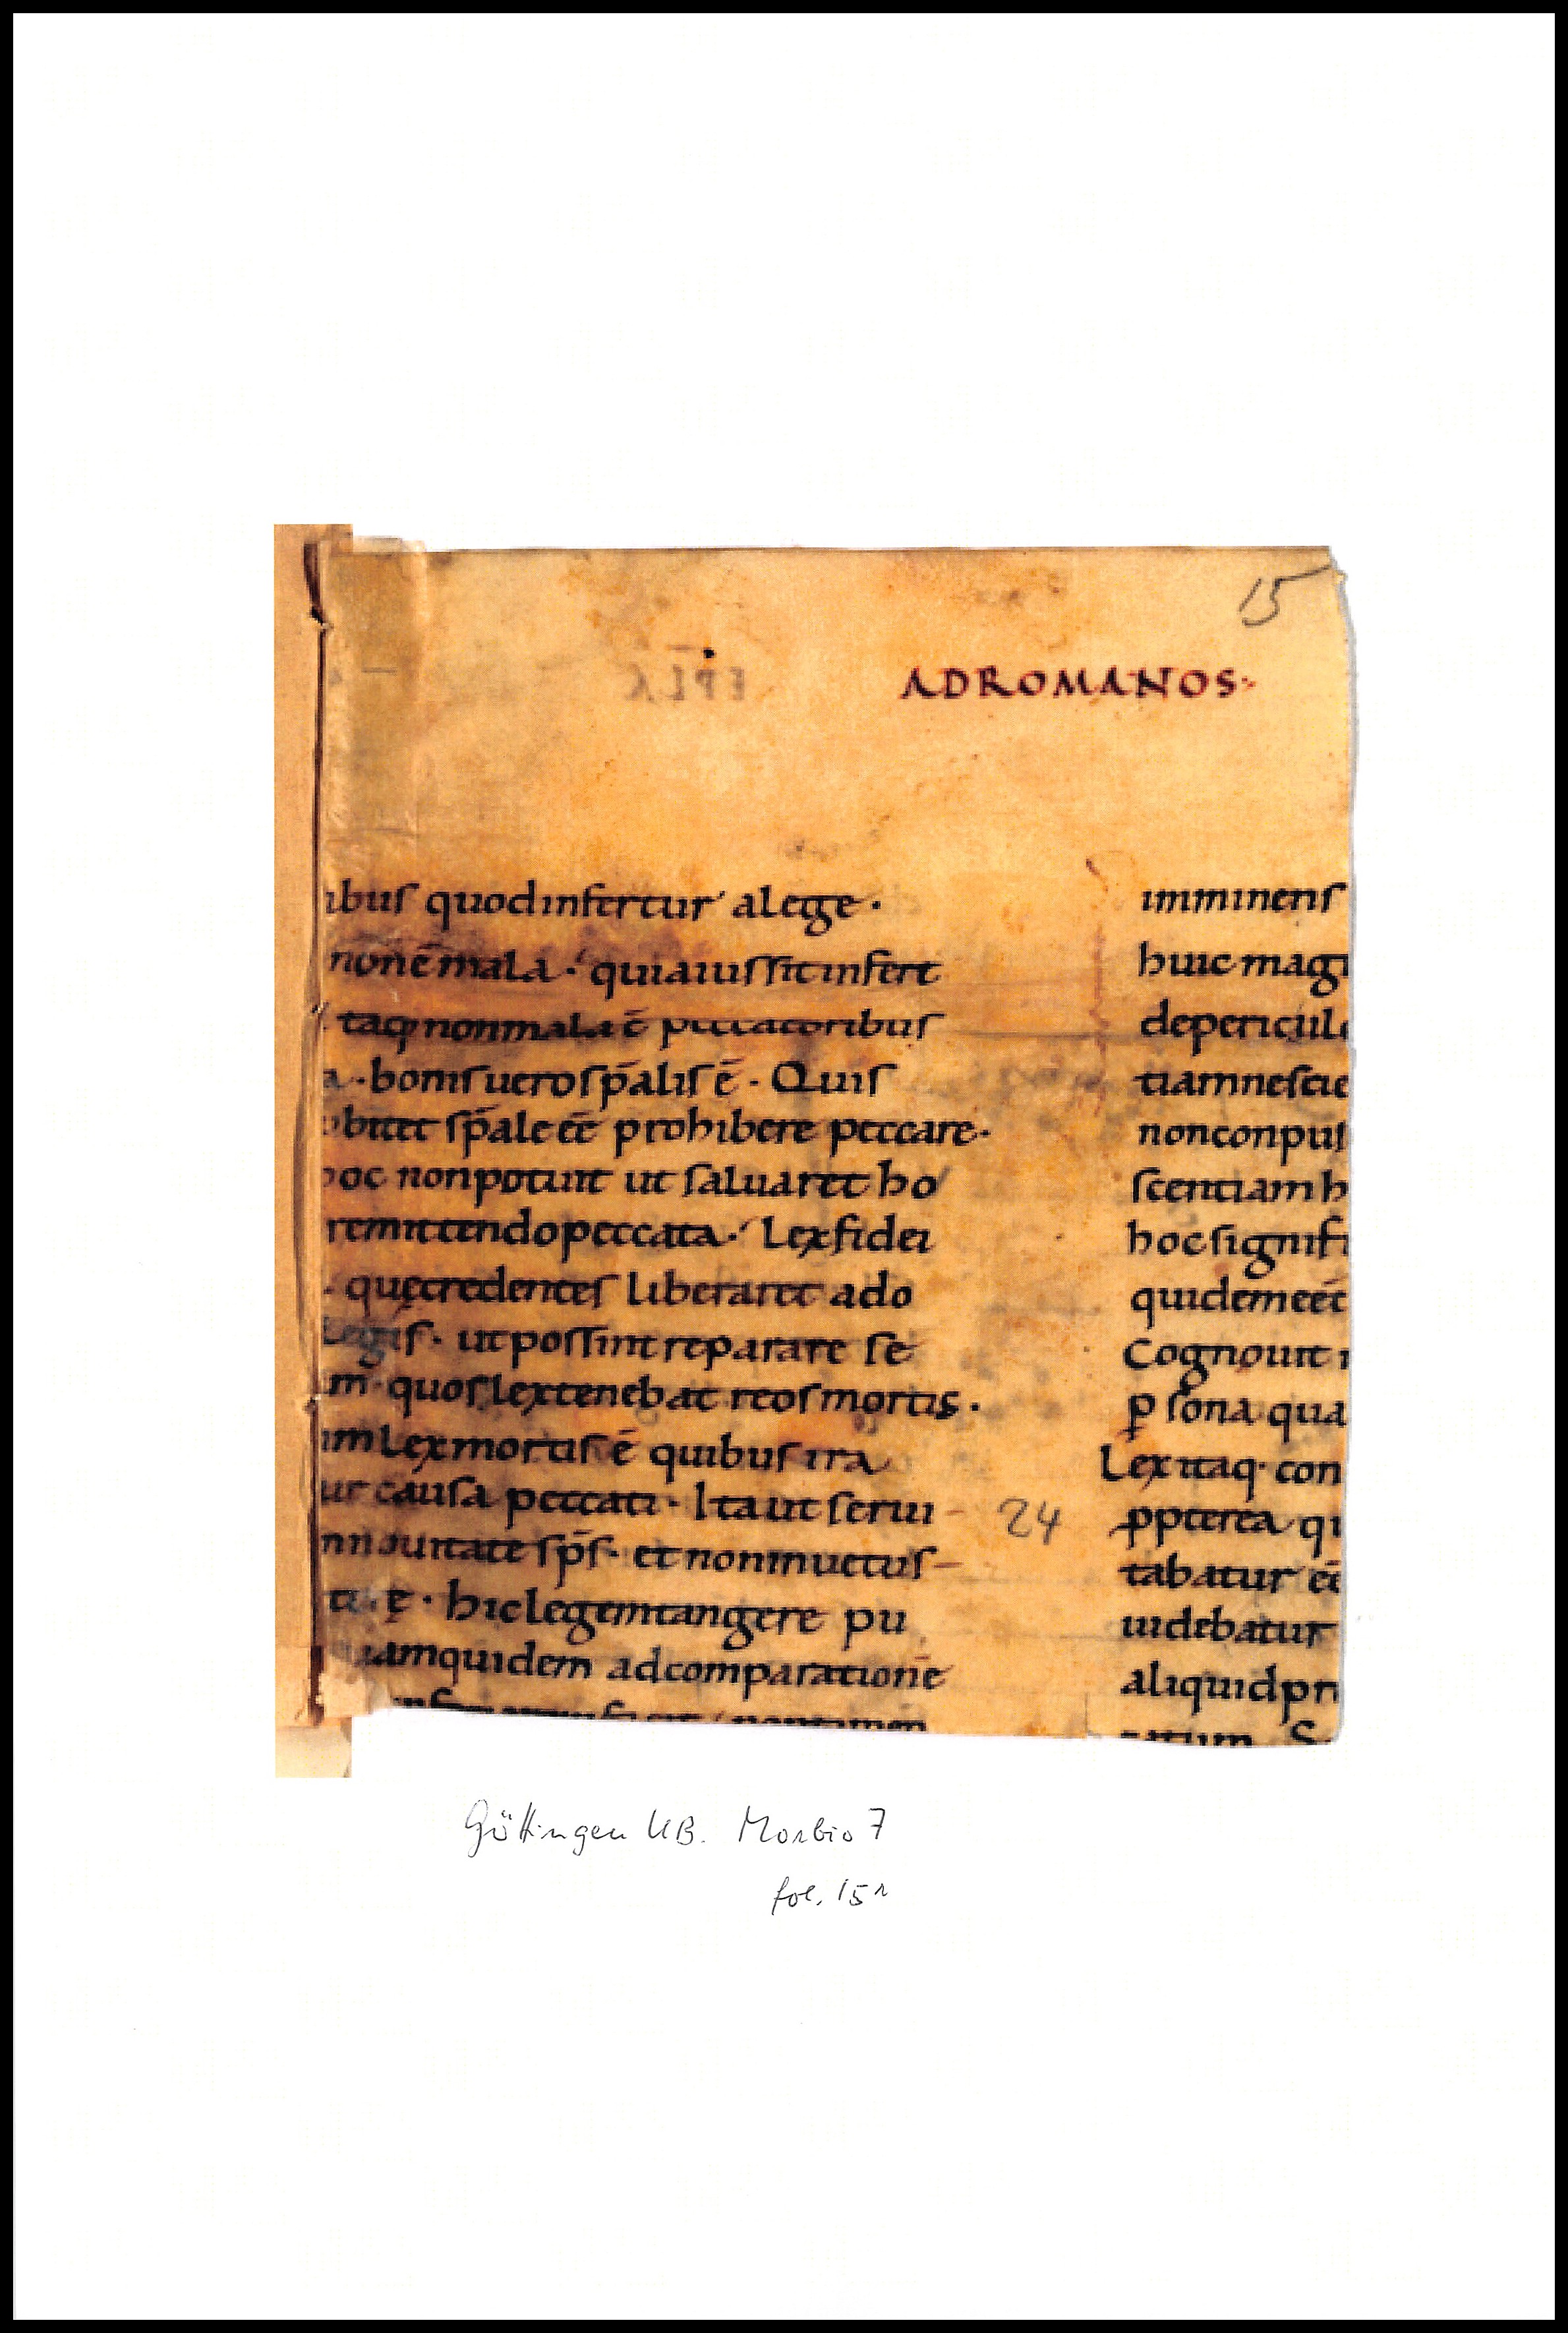 15
ADROMANOS·
ibus quod infertur alege·
non ē mala· quia iussit infert
taq; non mala ē peccatoribus
a· bonis uero sp̄alis ē· Quis
ubitet sp̄ale eē prohibere peccare·
hoc non potuit ut saluaret ho
remittendo peccata· Lex fidei
· quę credentes liberaret ado
Legis· ut possint reparare se
m· quos lex tenebat reos mortis·
im Lex mortis ē quibus ira
ur causa peccati· Ita ut serui
in nouitate sp̄s· et non in uetus
hic legem tangere pu
quam quidem ad comparationē
imminens
huic magi
de pericul
tiam nescie
non conpu
scentiam h
hoc signifi
quidem eēt
Cognouit
ꝑsona qua
Lex itaq· con
24
ꝓpterea qu
tabatur eē
uidebatur
aliquid pri
Göttingen UB. Morbio 7
fol. 15r